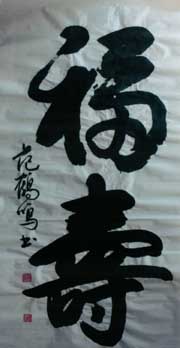 福壽
范鶴鳴书